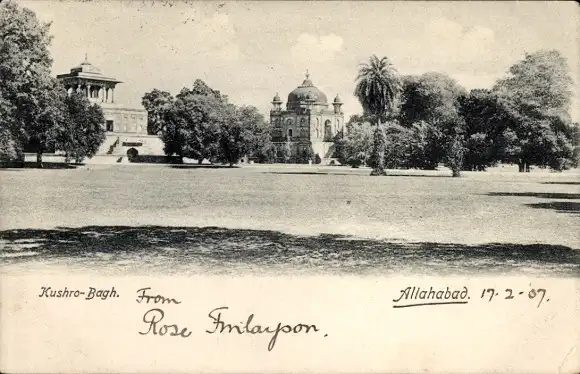 Kushro-Bagh. From Allahabad. 17-2-07.
Rose Finlayson.